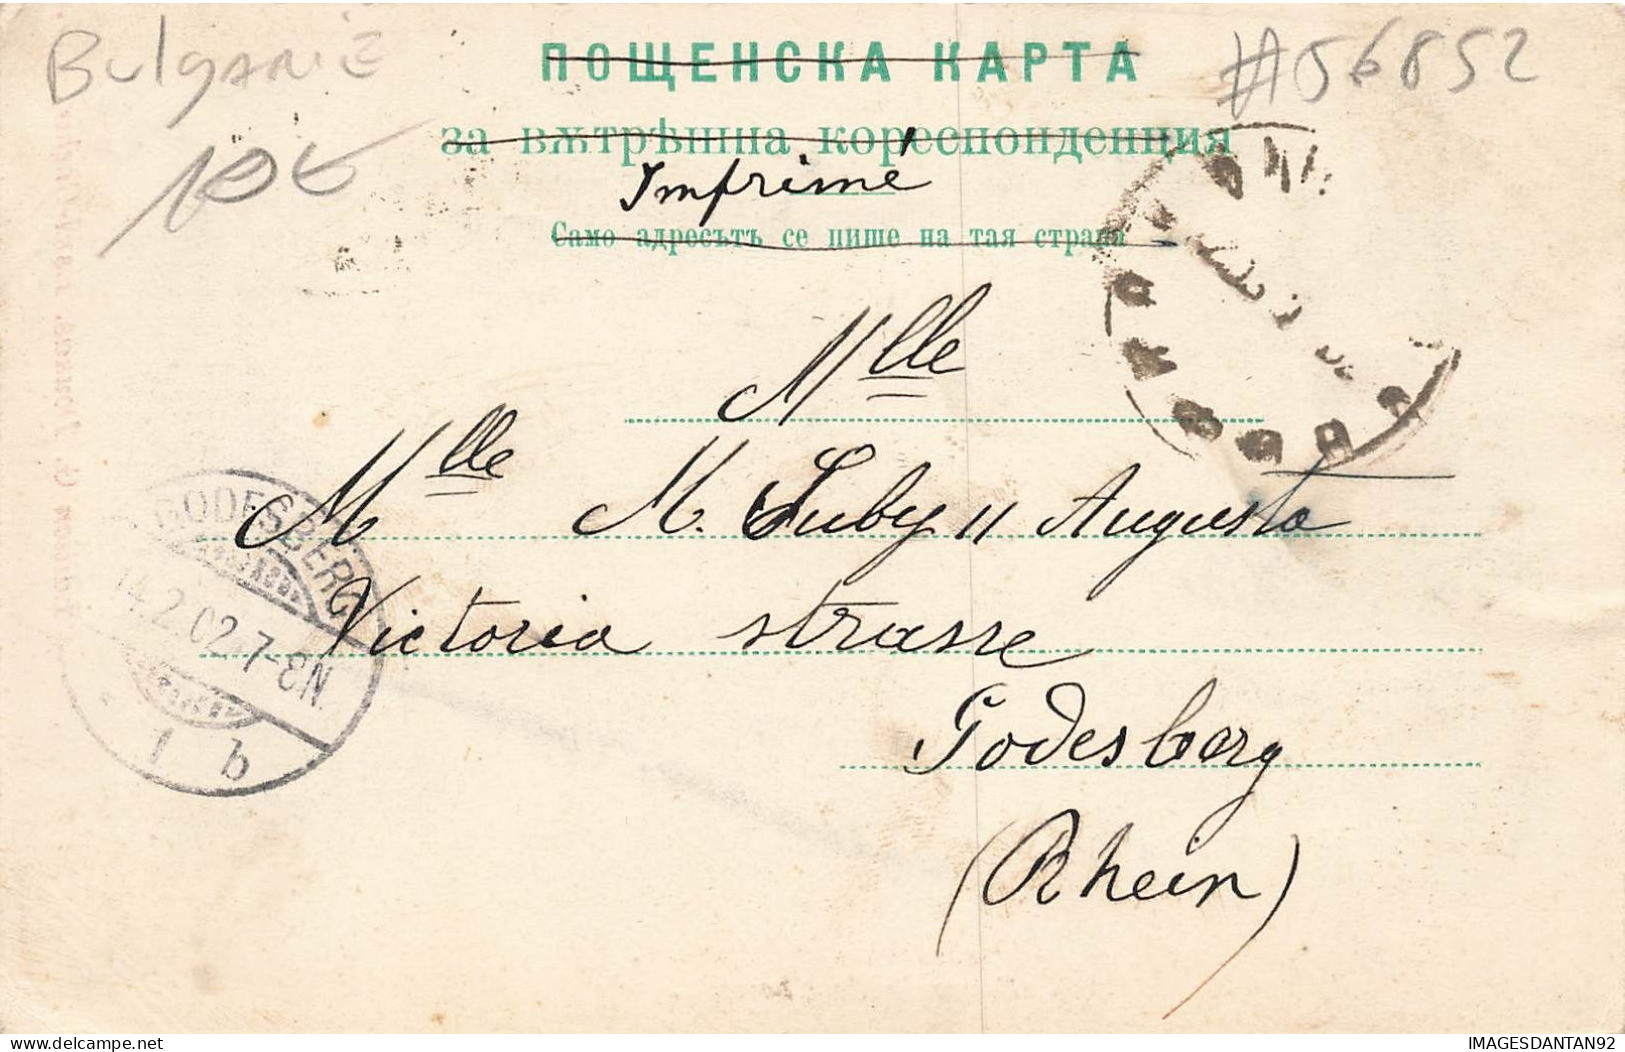 Bulgarie
#56852
10€
ПОЩЕНСКА КАРТА
за вѫтрѣшна кореспонденция
Imprimé
Само адресътъ се пише на тая страна
Mlle
Mlle M. Luby 11 Augusta
Victoria strasse
Godesberg
(Rhein)
GODESBERG
14.2.02.7-8N.
1 b
IMAGESDANTAN92